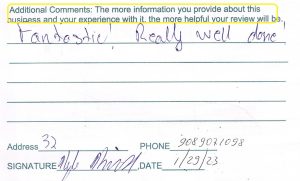 Additional Comments: The more information you provide about this
business and your experience with it, the more helpful your review will be.
Fantastic! Really well done!
Address 32 PHONE 9089071098
SIGNATURE DATE 1/29/23